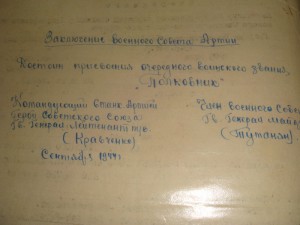 Заключение Военного Совета Армии
Достоин присвоения очередного воинского звания
"Полковник"
Командующий 6 танк. Армией
Герой Советского Союза
Гв. Генерал Лейтенант т/в
(Кравченко)
Сентябрь 1944г.
Член Военного Сове
Гв. Генерал Майор
(Туманян)